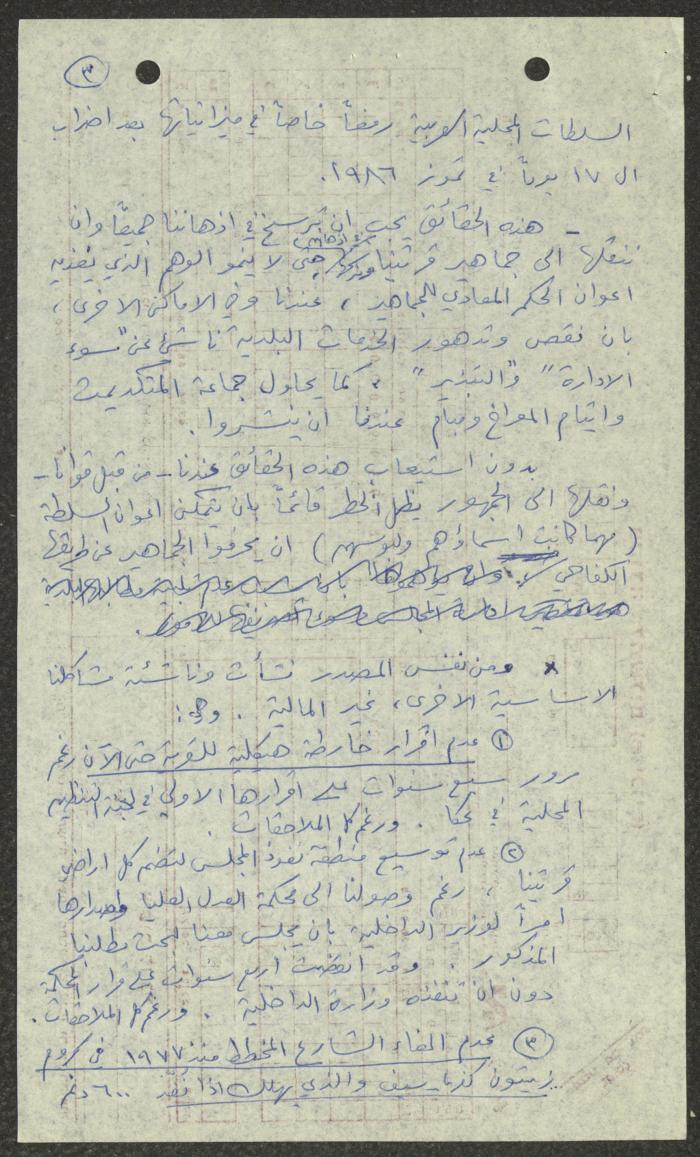 ٣
السلطات المحلية العربية رفعاً خاصاً في ميزانياتها بعد اضراب
ال ١٧ يوماً في تموز ١٩٨٦.
- هذه الحقائق يجب ان تترسخ في اذهاننا جميعاً وان
ننقلها الى جماهير قريتنا حتى لا ينمو الوهم الذي يغذيه
اعوان الحكم المعادي للجماهير، عندنا وفي الاماكن الاخرى،
بان نقص وتدهور الخدمات البلدية ناشئ عن "سوء
الادارة" و"التبذير". كما يحاول جماعة المتكديمت
وايتام المعراخ ومبام عندنا ان ينشروا.
بدون استيعاب هذه الحقائق عندنا - من قبل قوانا -
ونقلها الى الجمهور يظل الخطر قائماً بان يتمكن اعوان السلطة
(مهما كانت اسماؤهم ولبوسهم) ان يحرفوا الجماهير عن طريقها
الكفاحي
x ومن نفس المصدر نشأت وناشئة مشاكلنا
الاساسية الاخرى، غير المالية. وهي:
١ عدم اقرار خارطة هيكلية للقرية حتى الآن رغم
مرور سبع سنوات على اقرارها الاولي في لجنة التنظيم
المحلية في عكا. ورغم كل الملاحقات.
٢ عدم توسيع منطقة نفوذ المجلس لتضم كل اراضي
قريتنا، رغم وصولنا الى محكمة العدل العليا واصدارها
امراً لوزير الداخلية بان يجلس معنا لبحث مطلبنا
المذكور. وقد انقضت اربع سنوات على قرار المحكمة
دون ان تنفذه وزارة الداخلية. ورغم كل الملاحقات.
٣ عدم الغاء الشارع المخطط منذ ١٩٧٧ في كروم
زيتون كفرياسيف والذي يهلك اذا نفّذ ٦٠٠ دنم